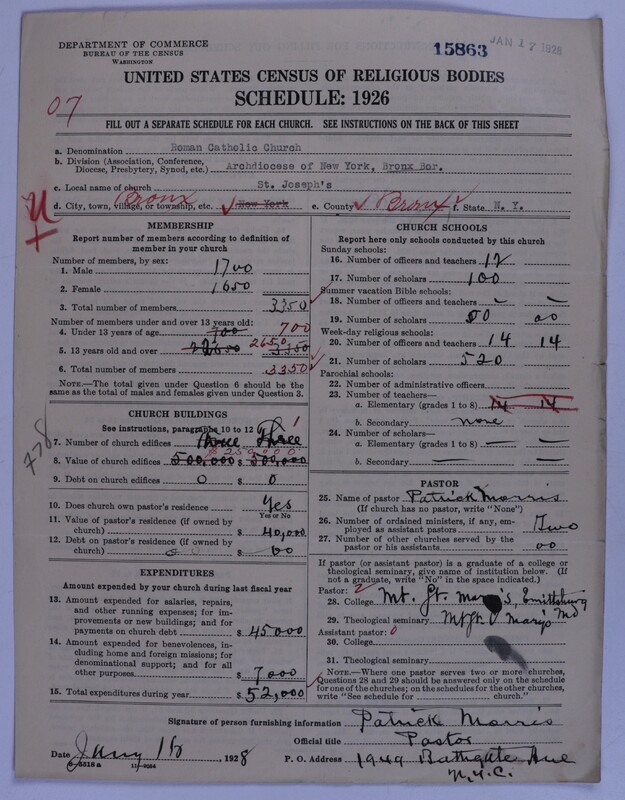 DEPARTMENT OF COMMERCE
BUREAU OF THE CENSUS
WASHINGTON
15863
JAN 17 1928
UNITED STATES CENSUS OF RELIGIOUS BODIES
SCHEDULE: 1926
07
FILL OUT A SEPARATE SCHEDULE FOR EACH CHURCH. SEE INSTRUCTIONS ON THE BACK OF THIS SHEET
a. Denomination Roman Catholic Church
b. Division (Association, Conference, Diocese, Presbytery, Synod, etc.) Archdiocese of New York, Bronx Bor.
c. Local name of church St. Joseph's
d. City, town, village, or township, etc. Bronx New York e. County Bronx f. State N. Y.
MEMBERSHIP
Report number of members according to definition of
member in your church
Number of members, by sex:
1. Male 1700
2. Female 1650
3. Total number of members 3350
Number of members under and over 13 years old:
4. Under 13 years of age 700 700
5. 13 years old and over 2650 2650 3350
6. Total number of members 3350
NOTE.—The total given under Question 6 should be the
same as the total of males and females given under Question 3.
CHURCH BUILDINGS
See instructions, paragraphs 10 to 12
1
7. Number of church edifices Three Three
$250000
8. Value of church edifices 500,000 $ 500,000
9. Debt on church edifices 0 $ 0
10. Does church own pastor's residence Yes
Yes or No
11. Value of pastor's residence (if owned by
church) $ 40,000
12. Debt on pastor's residence (if owned by
church) $ 00
EXPENDITURES
Amount expended by your church during last fiscal year
13. Amount expended for salaries, repairs,
and other running expenses; for im-
provements or new buildings; and for
payments on church debt $ 45000
14. Amount expended for benevolences, in-
cluding home and foreign missions; for
denominational support; and for all
other purposes $ 7000
15. Total expenditures during year $ 52,000
CHURCH SCHOOLS
Report here only schools conducted by this church
Sunday schools:
16. Number of officers and teachers 12
17. Number of scholars 100
Summer vacation Bible schools:
18. Number of officers and teachers
19. Number of scholars 00 00
Week-day religious schools:
20. Number of officers and teachers 14 14
21. Number of scholars 520
Parochial schools:
22. Number of administrative officers
23. Number of teachers—
a. Elementary (grades 1 to 8) 14 14
b. Secondary none
24. Number of scholars—
a. Elementary (grades 1 to 8)
b. Secondary
PASTOR
25. Name of pastor Patrick Morris
(If church has no pastor, write "None")
26. Number of ordained ministers, if any, em-
ployed as assistant pastors Two
27. Number of other churches served by the
pastor or his assistants 00
If pastor (or assistant pastor) is a graduate of a college or
theological seminary, give name of institution below. (If
not a graduate, write "No" in the space indicated.)
Pastor: 2
28. College Mt. St. Mary's, Emittsburg Md
29. Theological seminary Mt St Marys
Assistant pastor: 0
30. College
31. Theological seminary
NOTE.—Where one pastor serves two or more churches,
Questions 28 and 29 should be answered only on the schedule
for one of the churches; on the schedules for the other churches,
write "See schedule for church."
Signature of person furnishing information Patrick Morris
Official title Pastor
Date Jany 16, 1928 P. O. Address 1949 Bathgate Ave
N.Y.C.
8-5518 a